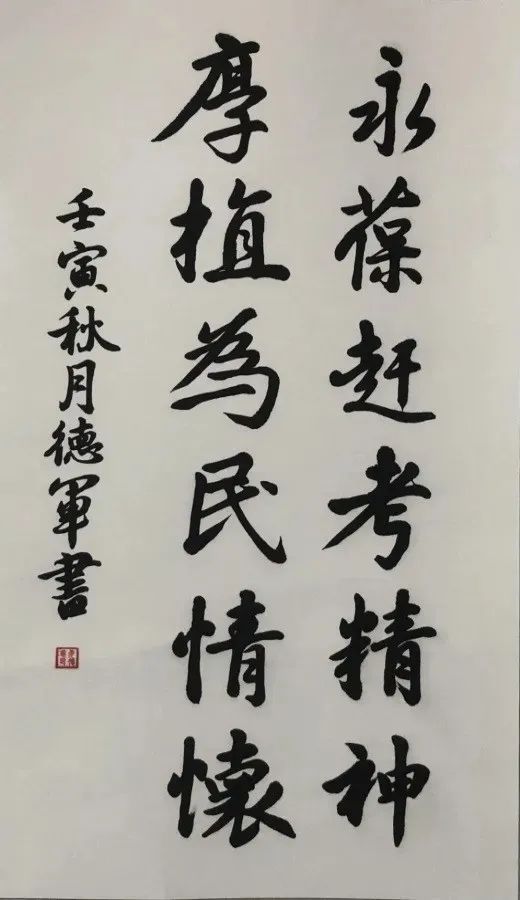 永葆赶考精神
厚植為民情懷
壬寅秋月德軍書